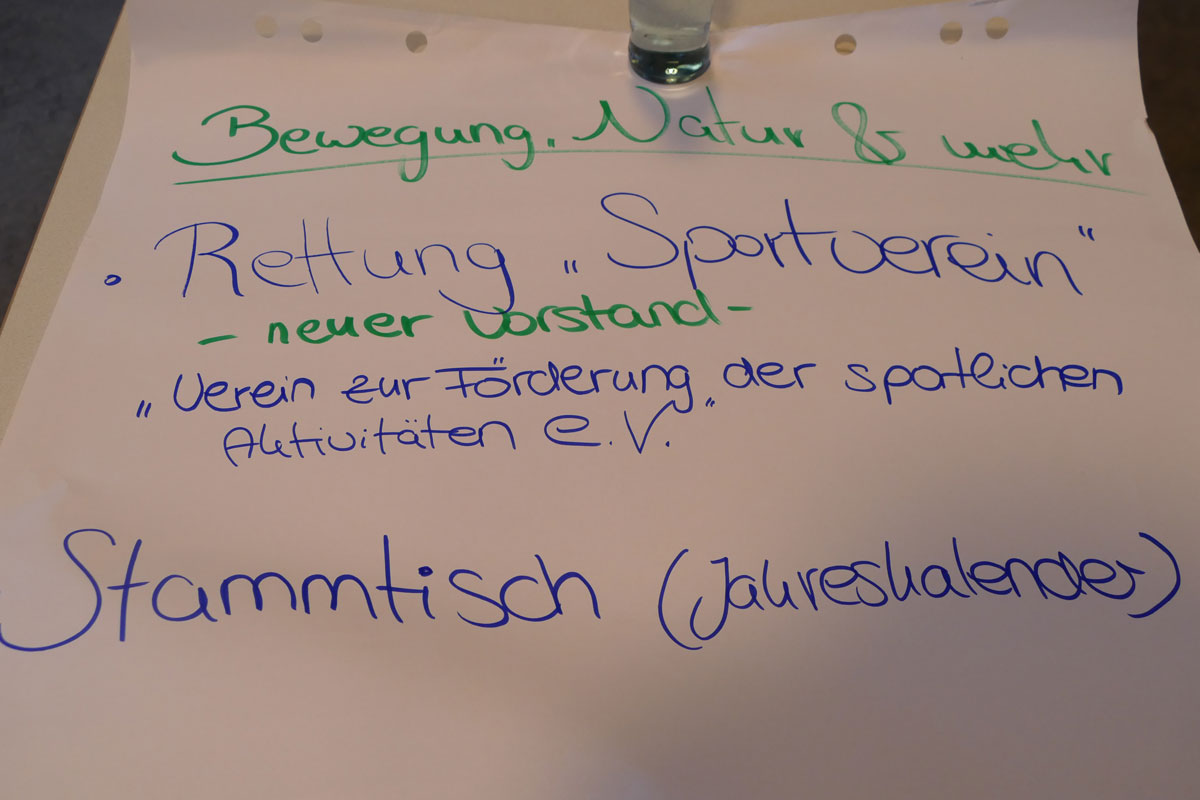 Bewegung, Natur & mehr
• Rettung „Sportverein“
- neuer Vorstand -
„Verein zur Förderung„ der sportlichen
Aktivitäten e.V.
Stammtisch (Jahreskalender)